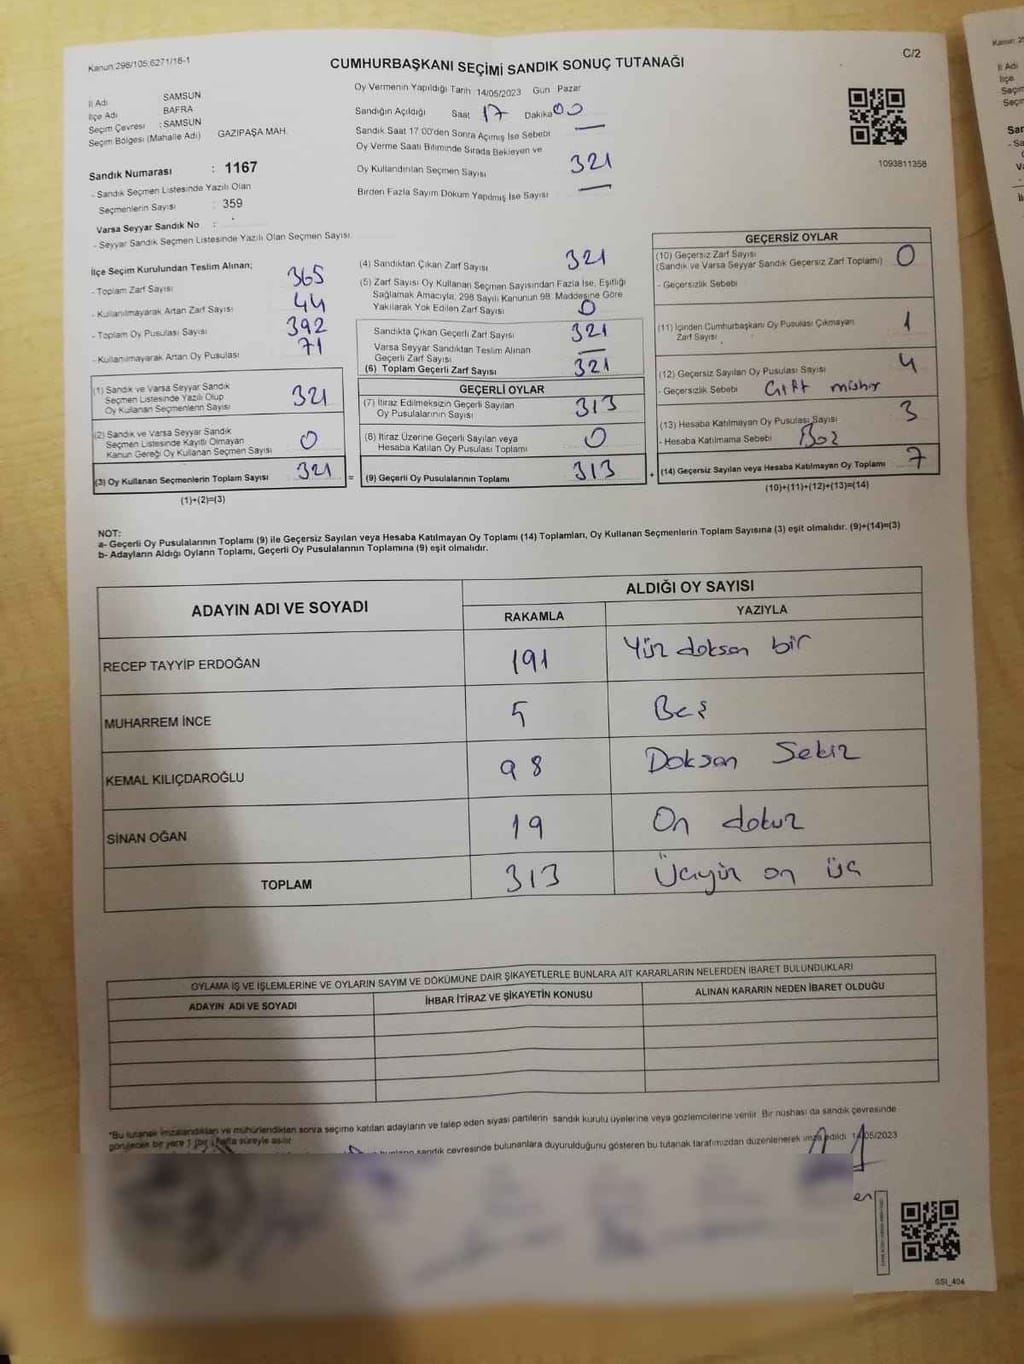 Kanun:298/105,6271/18-1
C/2
CUMHURBAŞKANI SEÇİMİ SANDIK SONUÇ TUTANAĞI
İl Adı SAMSUN
İlçe Adı BAFRA
Seçim Çevresi : SAMSUN
Seçim Bölgesi (Mahalle Adı) GAZİPAŞA MAH.
Sandık Numarası : 1167
- Sandık Seçmen Listesinde Yazılı Olan
Seçmenlerin Sayısı 359
Varsa Seyyar Sandık No :
- Seyyar Sandık Seçmen Listesinde Yazılı Olan Seçmen Sayısı
Oy Vermenin Yapıldığı Tarih 14/05/2023 Gün Pazar
Sandığın Açıldığı Saat 17 Dakika 00
Sandık Saat 17:00'den Sonra Açılmış İse Sebebi —
Oy Verme Saati Bitiminde Sırada Bekleyen ve
Oy Kullandırılan Seçmen Sayısı 321
Birden Fazla Sayım Döküm Yapılmış İse Sayısı —
1093811358
İlçe Seçim Kurulundan Teslim Alınan;
- Toplam Zarf Sayısı 365
- Kullanılmayarak Artan Zarf Sayısı 44
- Toplam Oy Pusulası Sayısı 392
- Kullanılmayarak Artan Oy Pusulası 71
(1) Sandık ve Varsa Seyyar Sandık
Seçmen Listesinde Yazılı Olup
Oy Kullanan Seçmenlerin Sayısı 321
(2) Sandık ve Varsa Seyyar Sandık
Seçmen Listesinde Kayıtlı Olmayan
Kanun Gereği Oy Kullanan Seçmen Sayısı 0
(3) Oy Kullanan Seçmenlerin Toplam Sayısı 321 =
(1)+(2)=(3)
(4) Sandıktan Çıkan Zarf Sayısı 321
(5) Zarf Sayısı Oy Kullanan Seçmen Sayısından Fazla İse, Eşitliği
Sağlamak Amacıyla; 298 Sayılı Kanunun 98. Maddesine Göre
Yakılarak Yok Edilen Zarf Sayısı 0
Sandıkta Çıkan Geçerli Zarf Sayısı 321
Varsa Seyyar Sandıktan Teslim Alınan
Geçerli Zarf Sayısı —
(6) Toplam Geçerli Zarf Sayısı 321
GEÇERLİ OYLAR
(7) İtiraz Edilmeksizin Geçerli Sayılan
Oy Pusulalarının Sayısı 313
(8) İtiraz Üzerine Geçerli Sayılan veya
Hesaba Katılan Oy Pusulası Toplamı 0
(9) Geçerli Oy Pusulalarının Toplamı 313 +
GEÇERSİZ OYLAR
(10) Geçersiz Zarf Sayısı
(Sandık ve Varsa Seyyar Sandık Geçersiz Zarf Toplamı) 0
- Geçersizlik Sebebi
(11) İçinden Cumhurbaşkanı Oy Pusulası Çıkmayan
Zarf Sayısı 1
(12) Geçersiz Sayılan Oy Pusulası Sayısı 4
- Geçersizlik Sebebi Çift mühür
(13) Hesaba Katılmayan Oy Pusulası Sayısı 3
- Hesaba Katılmama Sebebi Boz
(14) Geçersiz Sayılan veya Hesaba Katılmayan Oy Toplamı 7
(10)+(11)+(12)+(13)=(14)
NOT:
a- Geçerli Oy Pusulalarının Toplamı (9) ile Geçersiz Sayılan veya Hesaba Katılmayan Oy Toplamı (14) Toplamları, Oy Kullanan Seçmenlerin Toplam Sayısına (3) eşit olmalıdır. (9)+(14)=(3)
b- Adayların Aldığı Oyların Toplamı, Geçerli Oy Pusulalarının Toplamına (9) eşit olmalıdır.
ADAYIN ADI VE SOYADI
ALDIĞI OY SAYISI
RAKAMLA YAZIYLA
RECEP TAYYİP ERDOĞAN 191 Yüz doksan bir
MUHARREM İNCE 5 Beş
KEMAL KILIÇDAROĞLU 98 Doksan Sekiz
SİNAN OĞAN 19 On dokuz
TOPLAM 313 Üçyüz on üç
OYLAMA İŞ VE İŞLEMLERİNE VE OYLARIN SAYIM VE DÖKÜMÜNE DAİR ŞİKAYETLERLE BUNLARA AİT KARARLARIN NELERDEN İBARET BULUNDUKLARI
ADAYIN ADI VE SOYADI İHBAR İTİRAZ VE ŞİKAYETİN KONUSU ALINAN KARARIN NEDEN İBARET OLDUĞU
*Bu tutanak imzalandıktan ve mühürlendikten sonra seçime katılan adayların ve talep eden siyasi partilerin sandık kurulu üyelerine veya gözlemcilerine verilir. Bir nüshası da sandık çevresinde
görülecek bir yere 1 (bir) hafta süreyle asılır.
sandık çevresinde bulunanlara duyurulduğunu gösteren bu tutanak tarafımızdan düzenlenerek imza edildi. 14/05/2023
GSI_404